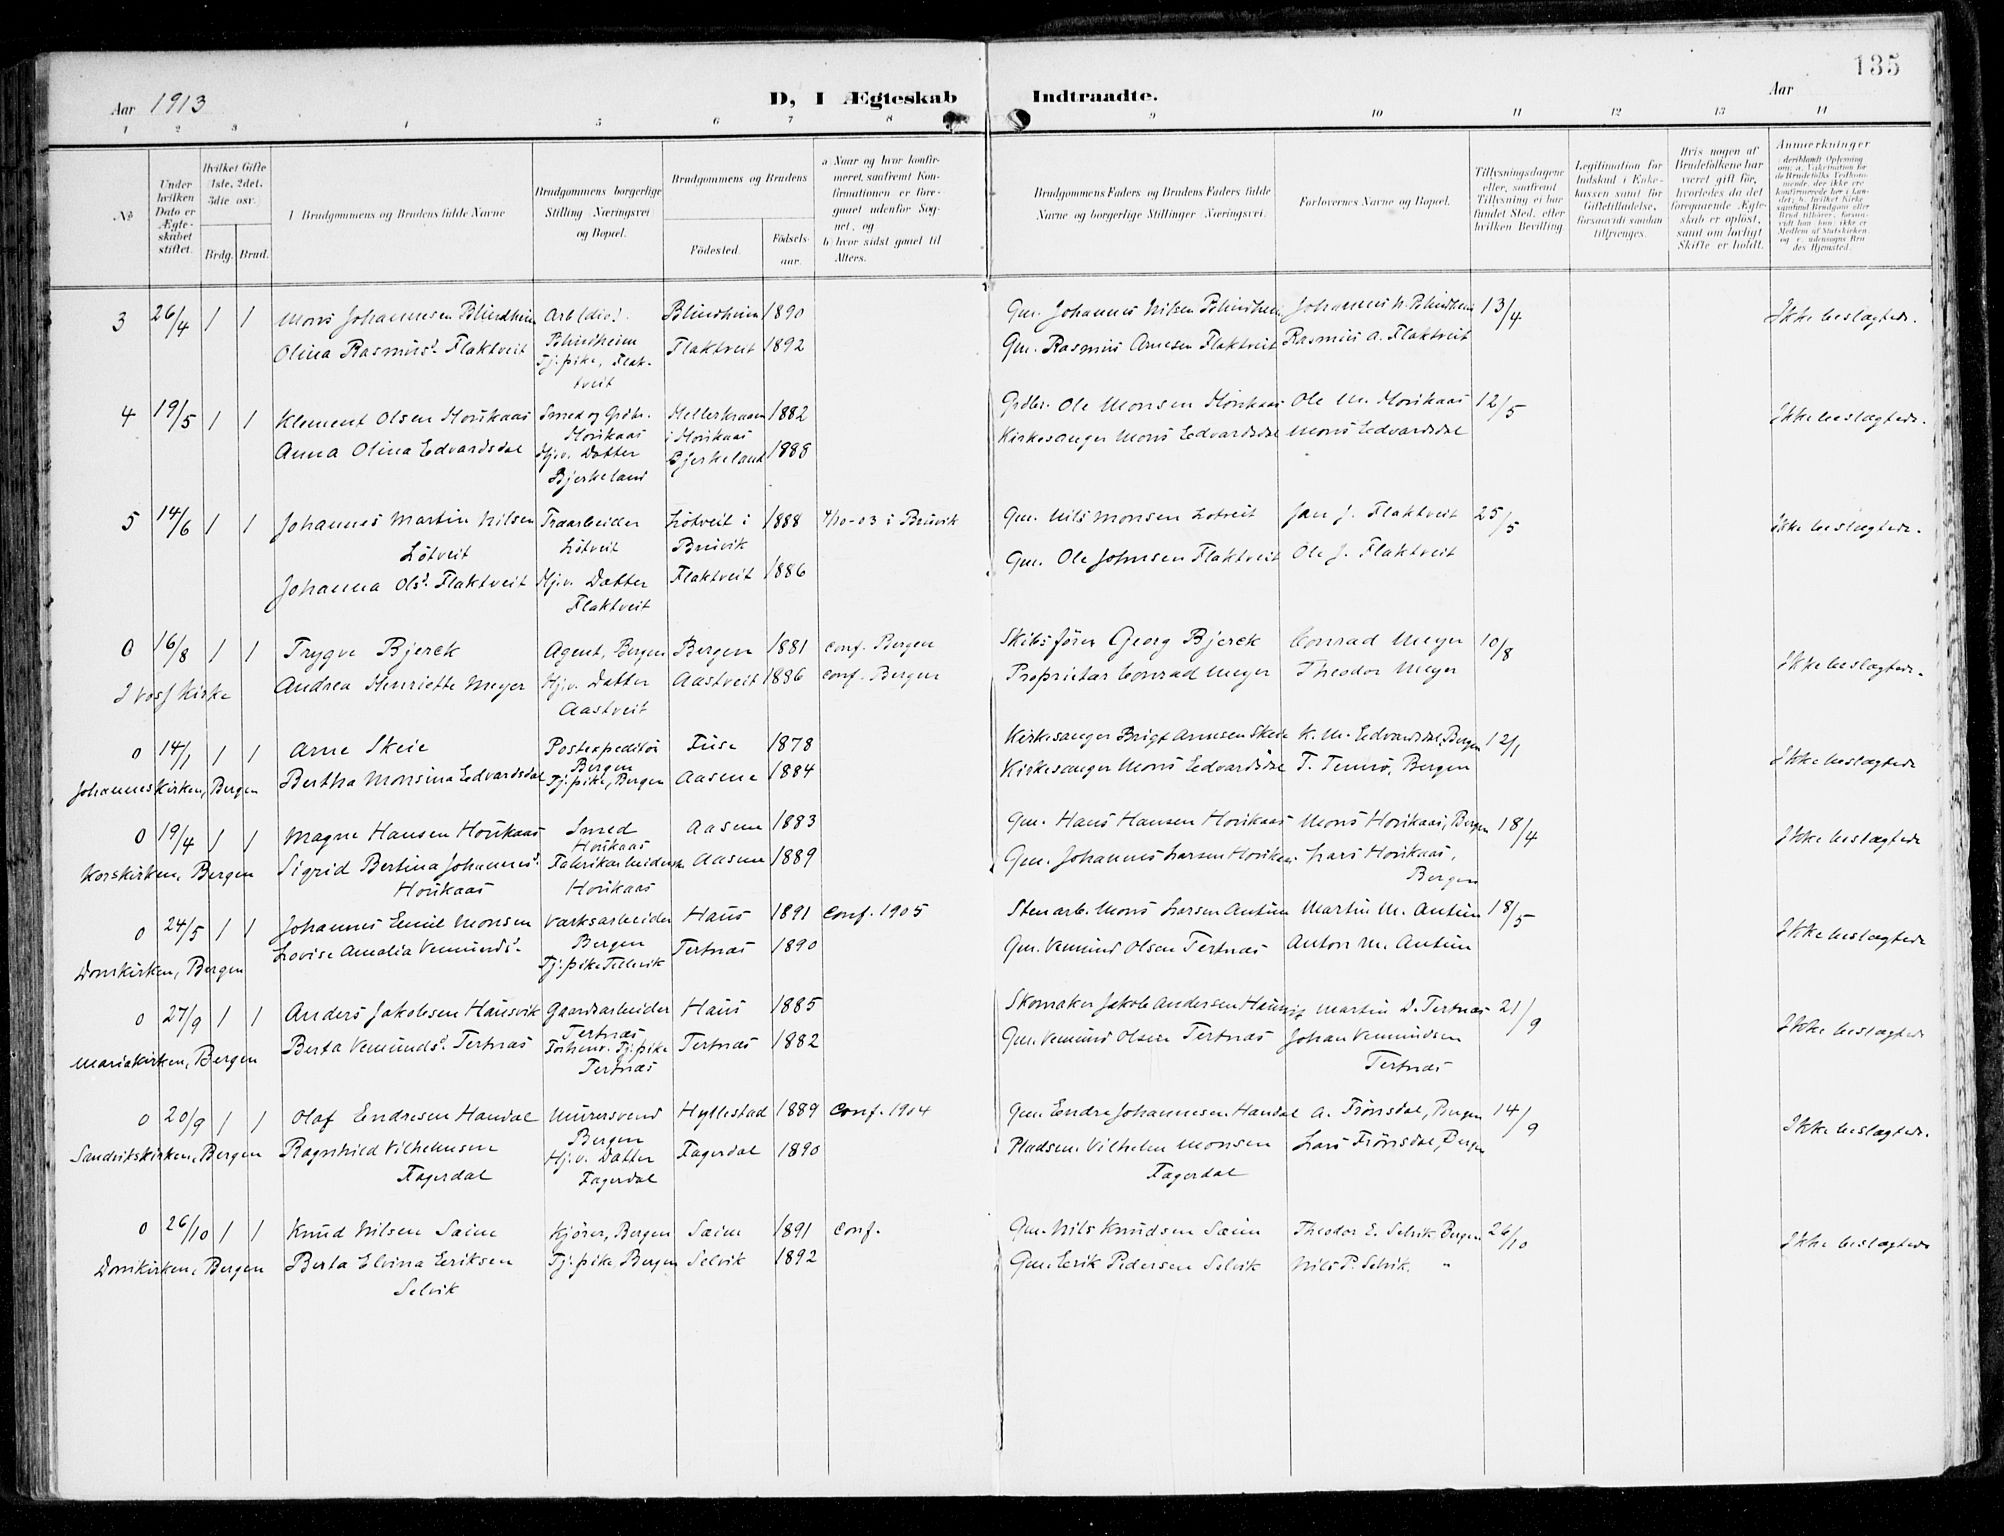 135
Aar 1913
D, I Ægteskab Indtraadte.
Aar
1 2 3 4 5 6 7 8 9 10 11 12 13 14
No
Under hvilken Dato er Ægteskabet stiftet.
Hvilket Gifte 1ste, 2det, 3die osv.
Brdg. Brud.
Brudgommens og Brudens fulde Navne
Brudgommens borgerlige Stilling Næringsvei og Bopæl.
Brudgommens og Brudens
Födested. Födselsaar.
a Naar og hvor konfirmeret, saafremt Konfirmationen er foregaaet udenfor Sognet, og
b hvor sidst gaaet til Alters.
Brudgommens Faders og Brudens Faders fulde Navne og borgerlige Stillinger Næringsvei.
Forlovernes Navne og Bopæl.
Tillysningsdagene eller, saafremt Tillysning ei har fundet Sted, efter hvilken Bevilling.
Legitimation for Indskud i Enkekassen samt for Giftetilladelse, forsaavidt saadan tiltrænges.
Hvis nogen af Brudefolkene har været gift för, hvorledes da det foregaaende Ægteskab er oplöst, samt om lovligt Skifte er holdt.
Anmerkninger
3 26/4 1 1 Mons Johannesen Blindheim Arb (do). Blindheim 1890 Gm. Johannes Nilsen Blindheim Johannes N. Blindheim 13/4 Ikke beslægtede.
Blindheim
Olina Rasmusd. Flaktveit Tj. pike, Flaktveit Flaktveit 1892 Gm. Rasmus Arnesen Flaktveit Rasmus A. Flaktveit
4 19/5 1 1 Klement Olsen Hourkaas Smed og Grdbr. 1882 Grdbr. Ole Monsen Hourkaas Ole M. Hourkaas 12/5 Ikke beslægtede.
Hourkaas i Hourkaas
Anna Olina Edvardsdal Hjv. Datter Bjerkeland 1888 Kirkesanger Mons Edvardsdal Mons Edvardsdal
Bjerkeland
5 14/6 1 1 Johannes Martin Nilsen Traarbeider Løtveit i 1888 4/10-03 i Bruvik Gm. Nils Monsen Løtveit Jan J. Flaktveit 25/5 Ikke beslægtede.
Løtveit Løtveit Bruvik
Johanna Olsd. Flaktveit Hjv. Datter Flaktveit 1886 Gm. Ole Johnsen Flaktveit Ole J. Flaktveit
Flaktveit
0 16/8 1 1 Trygve Bjerck Agent, Bergen Bergen 1881 conf. Bergen Skibsfører Georg Bjerck Conrad Meyer 10/8 Ikke beslægtede.
I Voss Kirke Andrea Henriette Meyer Hjv. Datter Aastveit 1886 conf. Bergen Proprietær Conrad Meyer Theodor Meyer
Aastveit
0 14/1 1 1 Arne Skeie Postexpeditør Fuse 1878 Kirkesanger Brigt Arnesen Skeie K. M. Edvardsdal, Bergen 12/1 Ikke beslægtede
Bergen
Johanneskirken, Bergen Bertha Monsina Edvardsdal Tj. pike, Bergen Aasene 1884 Kirkesanger Mons Edvardsdal T. Tennø, Bergen
0 19/4 1 1 Magne Hansen Hourkaas Smed Aasene 1883 Gm. Hans Hansen Hourkaas Mons Hourkaas, Bergen 18/4 Ikke beslægtede
Hourkaas
Korskirken, Bergen Sigrid Bertina Johannesd. Fabrikarbeiderske Aasene 1889 Gm. Johannes Larsen Hourkaas Lars Hourkaas,
Hourkaas Hourkaas Bergen
0 24/5 1 1 Johannes Emil Monsen Varksarbeider Haus 1891 conf. 1905 Stenarb. Mons Larsen Antun Martin M. Antun 18/5 Ikke beslægtede
Bergen
Domkirken, Bergen Lovise Amalia Vemundsd. Tj. pike Tellevik Tertnæs 1890 Gm. Vemund Olsen Tertnæs Anton M. Antun
0 27/9 1 1 Anders Jakobsen Hausvik Gaardsarbeider Haus 1885 Skomaker Jakob Andersen Hausvik Martin D. Tertnæs 21/9 Ikke beslægtede
Tertnæs
Mariakirken, Bergen Berta Vemundsd. Tertnæs Forhenv. Tj. pike Tertnæs 1882 Gm. Vemund Olsen Tertnæs Johan Vemundsen
Tertnæs Tertnæs
0 20/9 1 1 Olaf Endresen Handal Murersvend Hyllestad 1889 conf. 1904 Gm. Endre Johannesen Handal A. Frønsdal, Bergen 14/9 Ikke beslægtede.
Bergen
Sandvikskirken, Bergen Ragnhild Vilhelmsen Hjv. Datter Fagerdal 1890 Pladsm. Vilhelm Monsen Lars Frønsdal, Bergen
Fagerdal Fagerdal Fagerdal
0 26/10 1 1 Knud Nilsen Sæim Kjører, Bergen Sæim 1891 conf. Gm. Nils Knudsen Sæim Theodor E. Selvik Bergen 26/10 Ikke beslægtede
Domkirken, Bergen Berta Elvina Eriksen Tj. pike Bergen Selvik 1892 Gm. Erik Pedersen Selvik Nils P. Selvik. "
Selvik